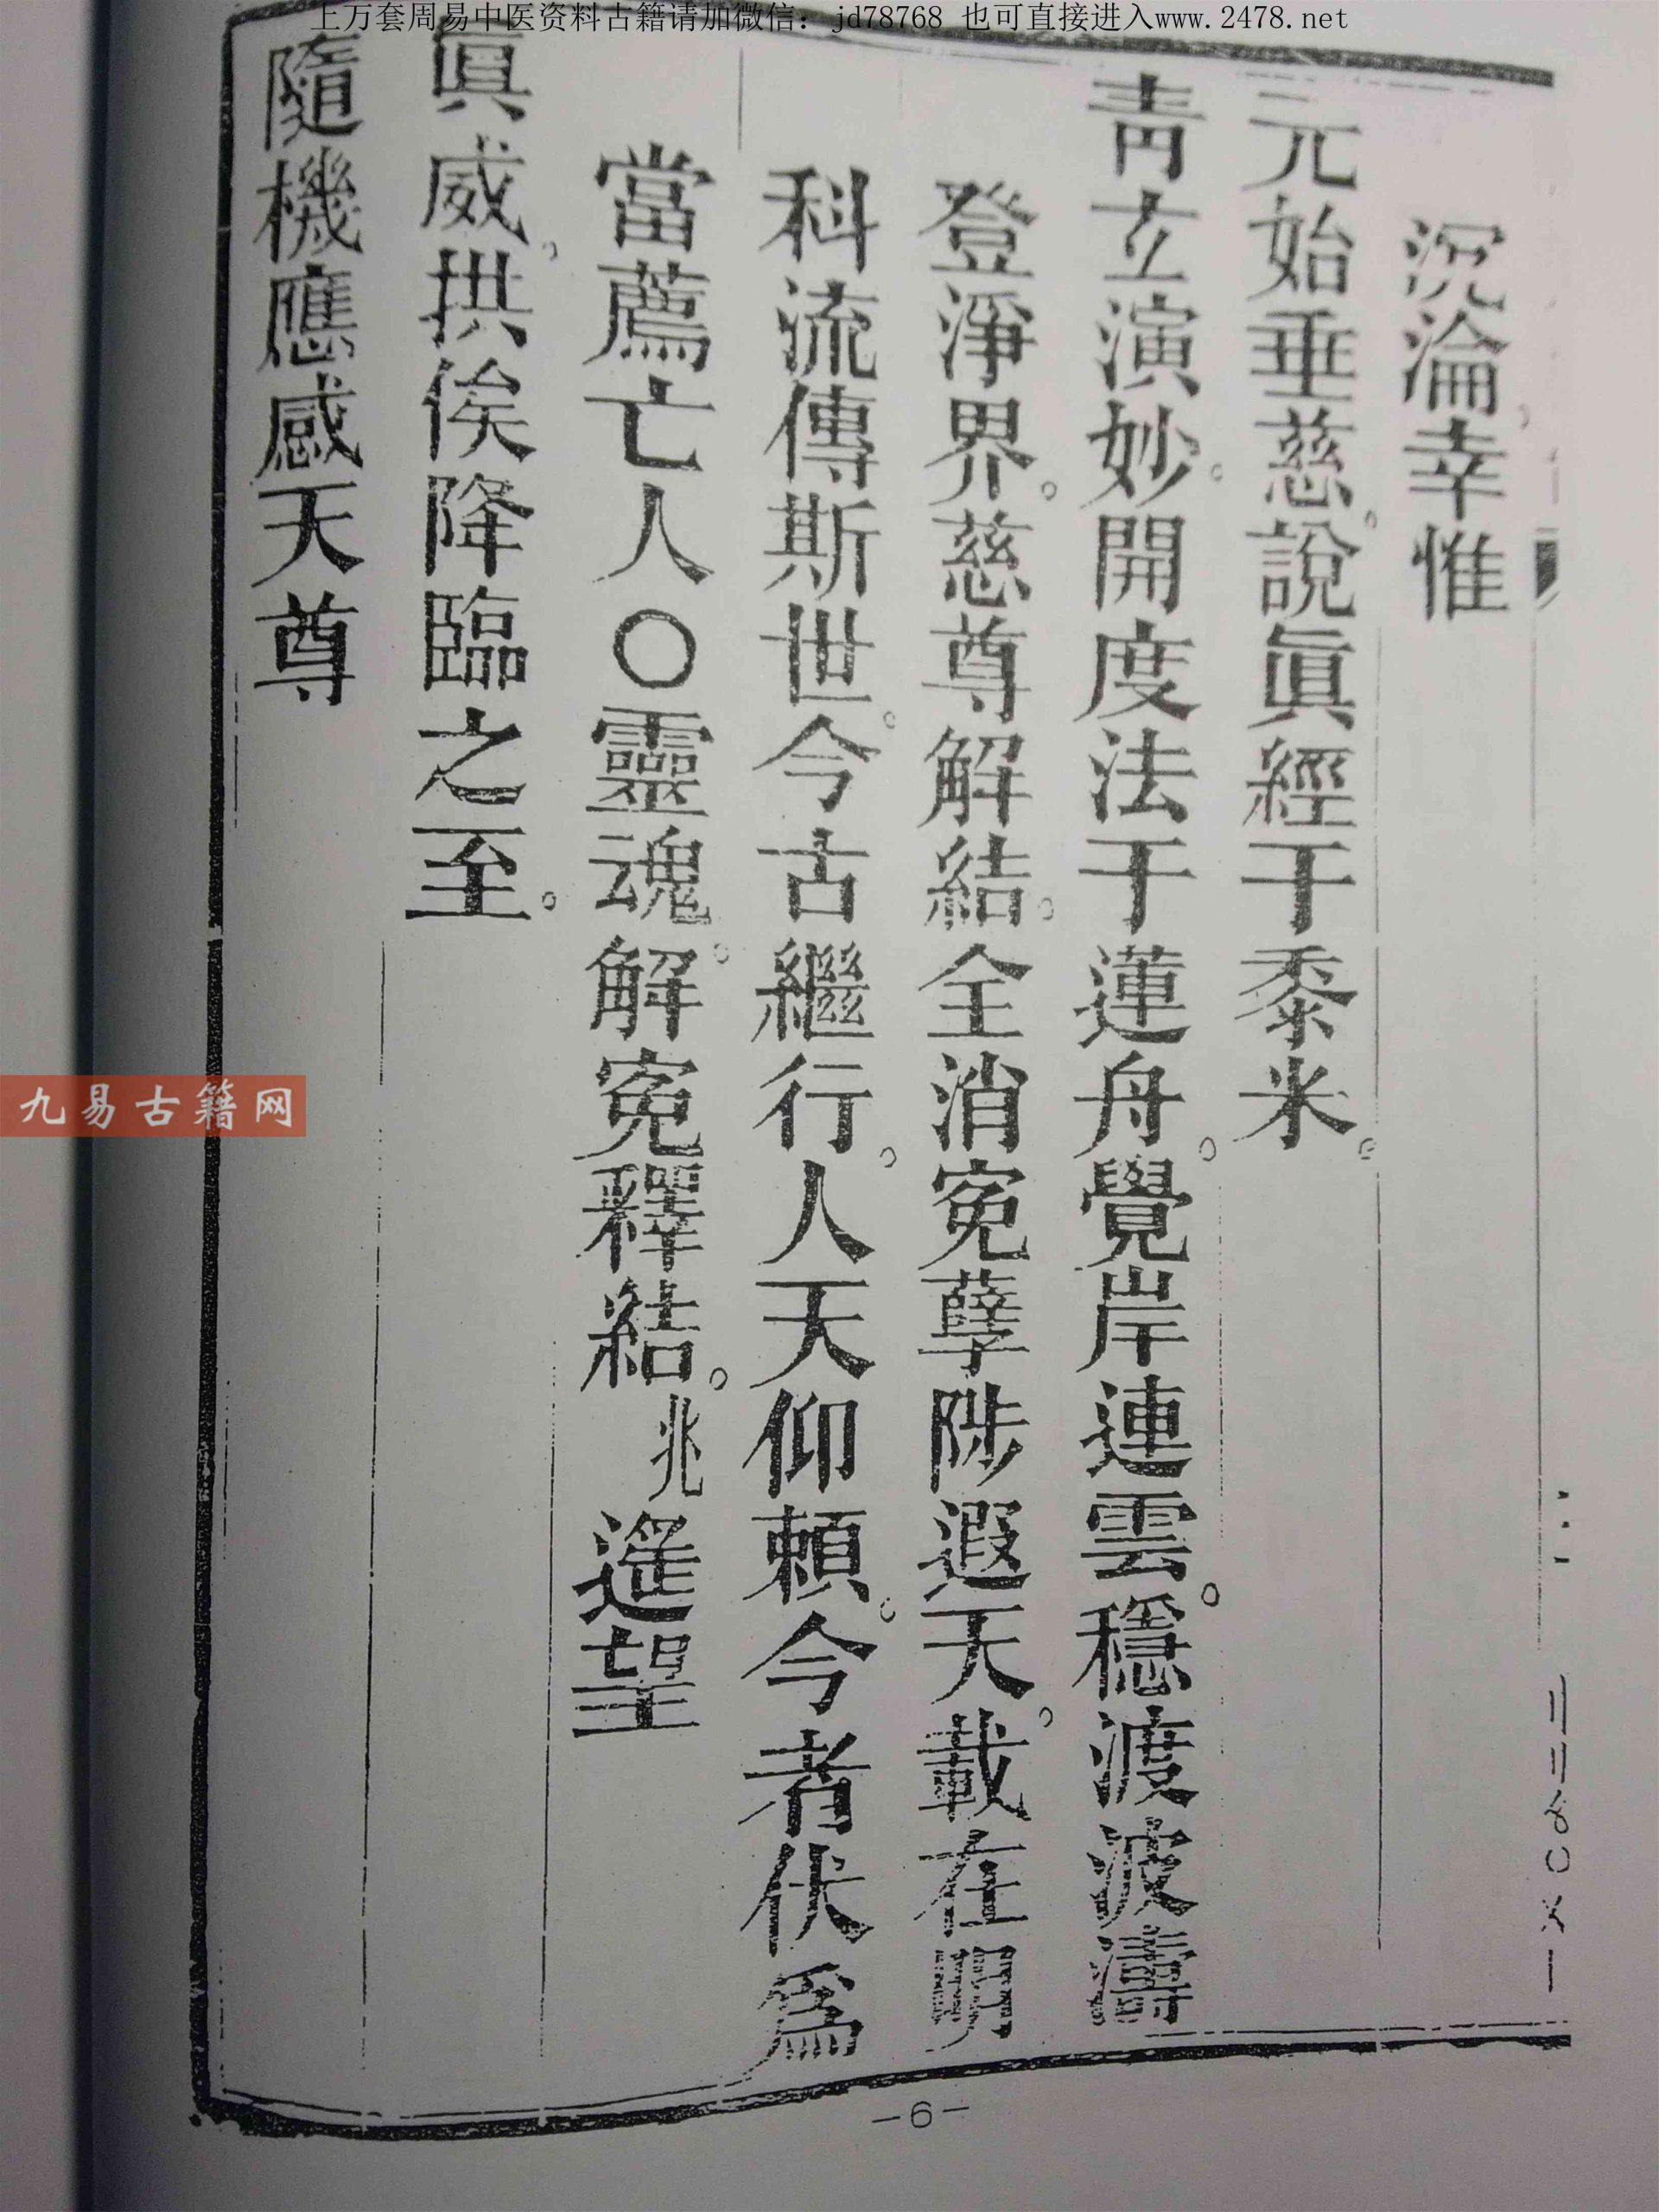 上万套周易中医资料古籍请加微信：jd78768 也可直接进入www.2478.net
沉淪幸惟
元始垂慈。說眞經于黍米。
靑立演妙。開度法于蓮舟。覺岸連雲。穩渡波濤
登淨界。慈尊解結。全消寃孽陟遐天。載在明
科流傳斯世。今古繼行。人天仰頼。今者伏爲
當薦亡人〇靈魂。解寃釋結。兆遥望
眞威。拱俟降臨之至。
隨機應感天尊
九易古籍网
-6-